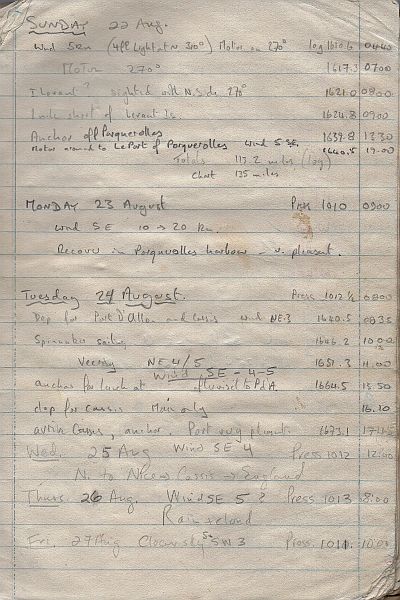 SUNDAY 22 Aug.
Wind 5kn (4fl Light at N. 300°) Motor on 270° log 1610.6 0440
Motor 270° 1617.3 0700
I Levant ? sighted with N. Side 270° 1621.0 0800
1 mile short of Levant Is. 1624.8 0900
Anchor off Porquerolles 1639.8 1330
Motor around to Le Port of Porquerolles Wind 5 SE. 1640.5 19.00
Totals 113.2 miles (log)
Chart 135 miles
MONDAY 23 August Press 1010 0900
Wind SE 10 → 20 kn.
Recover in Porquerolles harbour - v. pleasant.
Tuesday 24 August. Press 1012½ 0800
Dep for Port D'Allon and Cassis wind NE.3 1640.5 0835
Spinnaker sailing 1646.2 10.00
Veering NE 4/5 1651.3 11.00
Wind SE - 4-5
anchor for lunch at P d'A. 1664.5 13.50
dep for Cassis Main only 16.10
arrive Cassis, anchor. Port very pleasant. 1673.1 1745
Wed. 25 Aug Wind SE 4 Press 1012 12:00
N. to Nice Cassis → England
Thurs 26 Aug. Wind SE 5 ? Press 1013 8:00
Rain & cloud
Fri. 27 Aug Clear sky SW 3 Press. 1011. 10:00